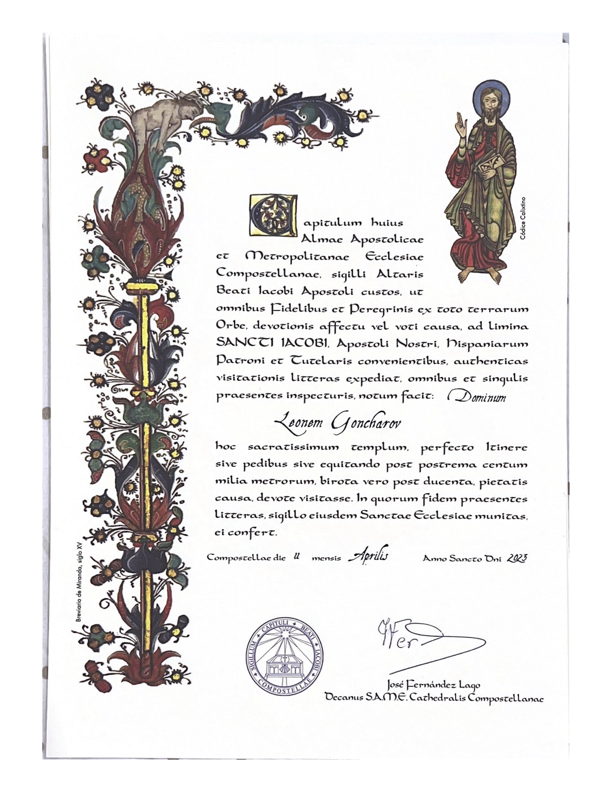 Capitulum huius
Almae Apostolicae
et Metropolitanae Ecclesiae
Compostellanae, sigilli Altaris
Beati Iacobi Apostoli custos, ut
omnibus Fidelibus et Peregrinis ex toto terrarum
Orbe, devotionis affectu vel voti causa, ad limina
SANCTI IACOBI, Apostoli Nostri, Hispaniarum
Patroni et Tutelaris convenientibus, authenticas
visitationis litteras expediat, omnibus et singulis
praesentes inspecturis, notum facit: Dominum
Leonem Goncharov
hoc sacratissimum templum, perfecto Itinere
sive pedibus sive equitando post postrema centum
milia metrorum, birota vero post ducenta, pietatis
causa, devote visitasse. In quorum fidem praesentes
litteras, sigillo eiusdem Sanctae Ecclesiae munitas,
ei confert.
Compostellae die 11 mensis Aprilis Anno Sancto Dni 2023
José Fernández Lago
Decanus S.A.M.E. Cathedralis Compostellanae
SIGILLUM CAPITULI BEATI JACOBI
COMPOSTELLAE
Códice Calixtino
Breviario de Miranda, siglo XV